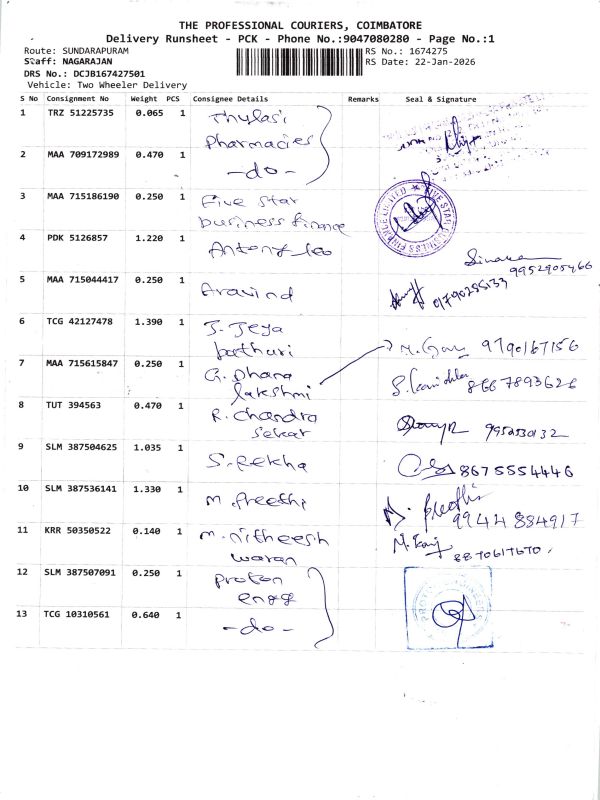 THE PROFESSIONAL COURIERS, COIMBATORE
Delivery Runsheet - PCK - Phone No.:9047080280 - Page No.:1
Route: SUNDARAPURAM
RS No.: 1674275
Staff: NAGARAJAN
RS Date: 22-Jan-2026
DRS No.: DCJB167427501
Vehicle: Two Wheeler Delivery
S No Consignment No Weight PCS Consignee Details Remarks Seal & Signature
1 TRZ 51225735 0.065 1 Thulasi
Pharmacies
2 MAA 709172989 0.470 1 -do-
3 MAA 715186190 0.250 1 Five Star
business finance
FIVE STAR BUSINESS FINANCE LIMITED
4 PDK 5126857 1.220 1 Antony Leo
9952905466
5 MAA 715044417 0.250 1 Aravind
6 TCG 42127478 1.390 1 J. Jeya
bharthuri
9790167156
7 MAA 715615847 0.250 1 G. Dhana
lakshmi
8667893626
8 TUT 394563 0.470 1 R. Chandra
Sekar
9 SLM 387504625 1.035 1 S. Rekha
8675554446
10 SLM 387536141 1.330 1 M. Preethi
M. Preethi
9944884917
11 KRR 50350522 0.140 1 M. Nitheesh
waran
8870617670
12 SLM 387507091 0.250 1 Proton
engg
13 TCG 10310561 0.640 1 -do-